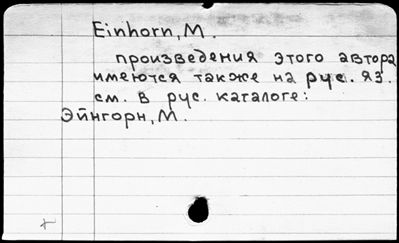 Einhorn, M.
произведения этого автора
имеются также на рус. яз.
см. в рус. каталоге:
Эйнгорн, М.